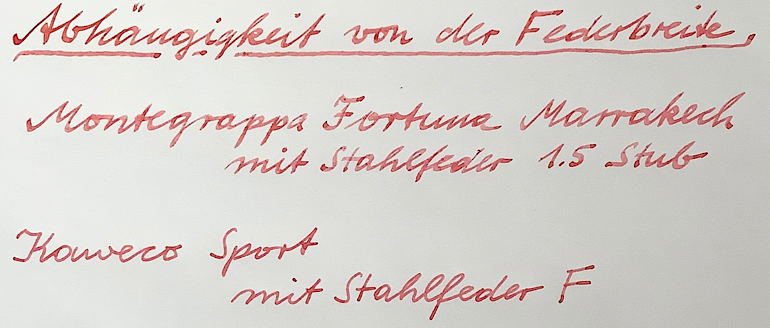 Abhängigkeit von der Federbreite,
Montegrappa Fortuna Marrakech
mit Stahlfeder 1.5 Stub
Kaweco Sport
mit Stahlfeder F